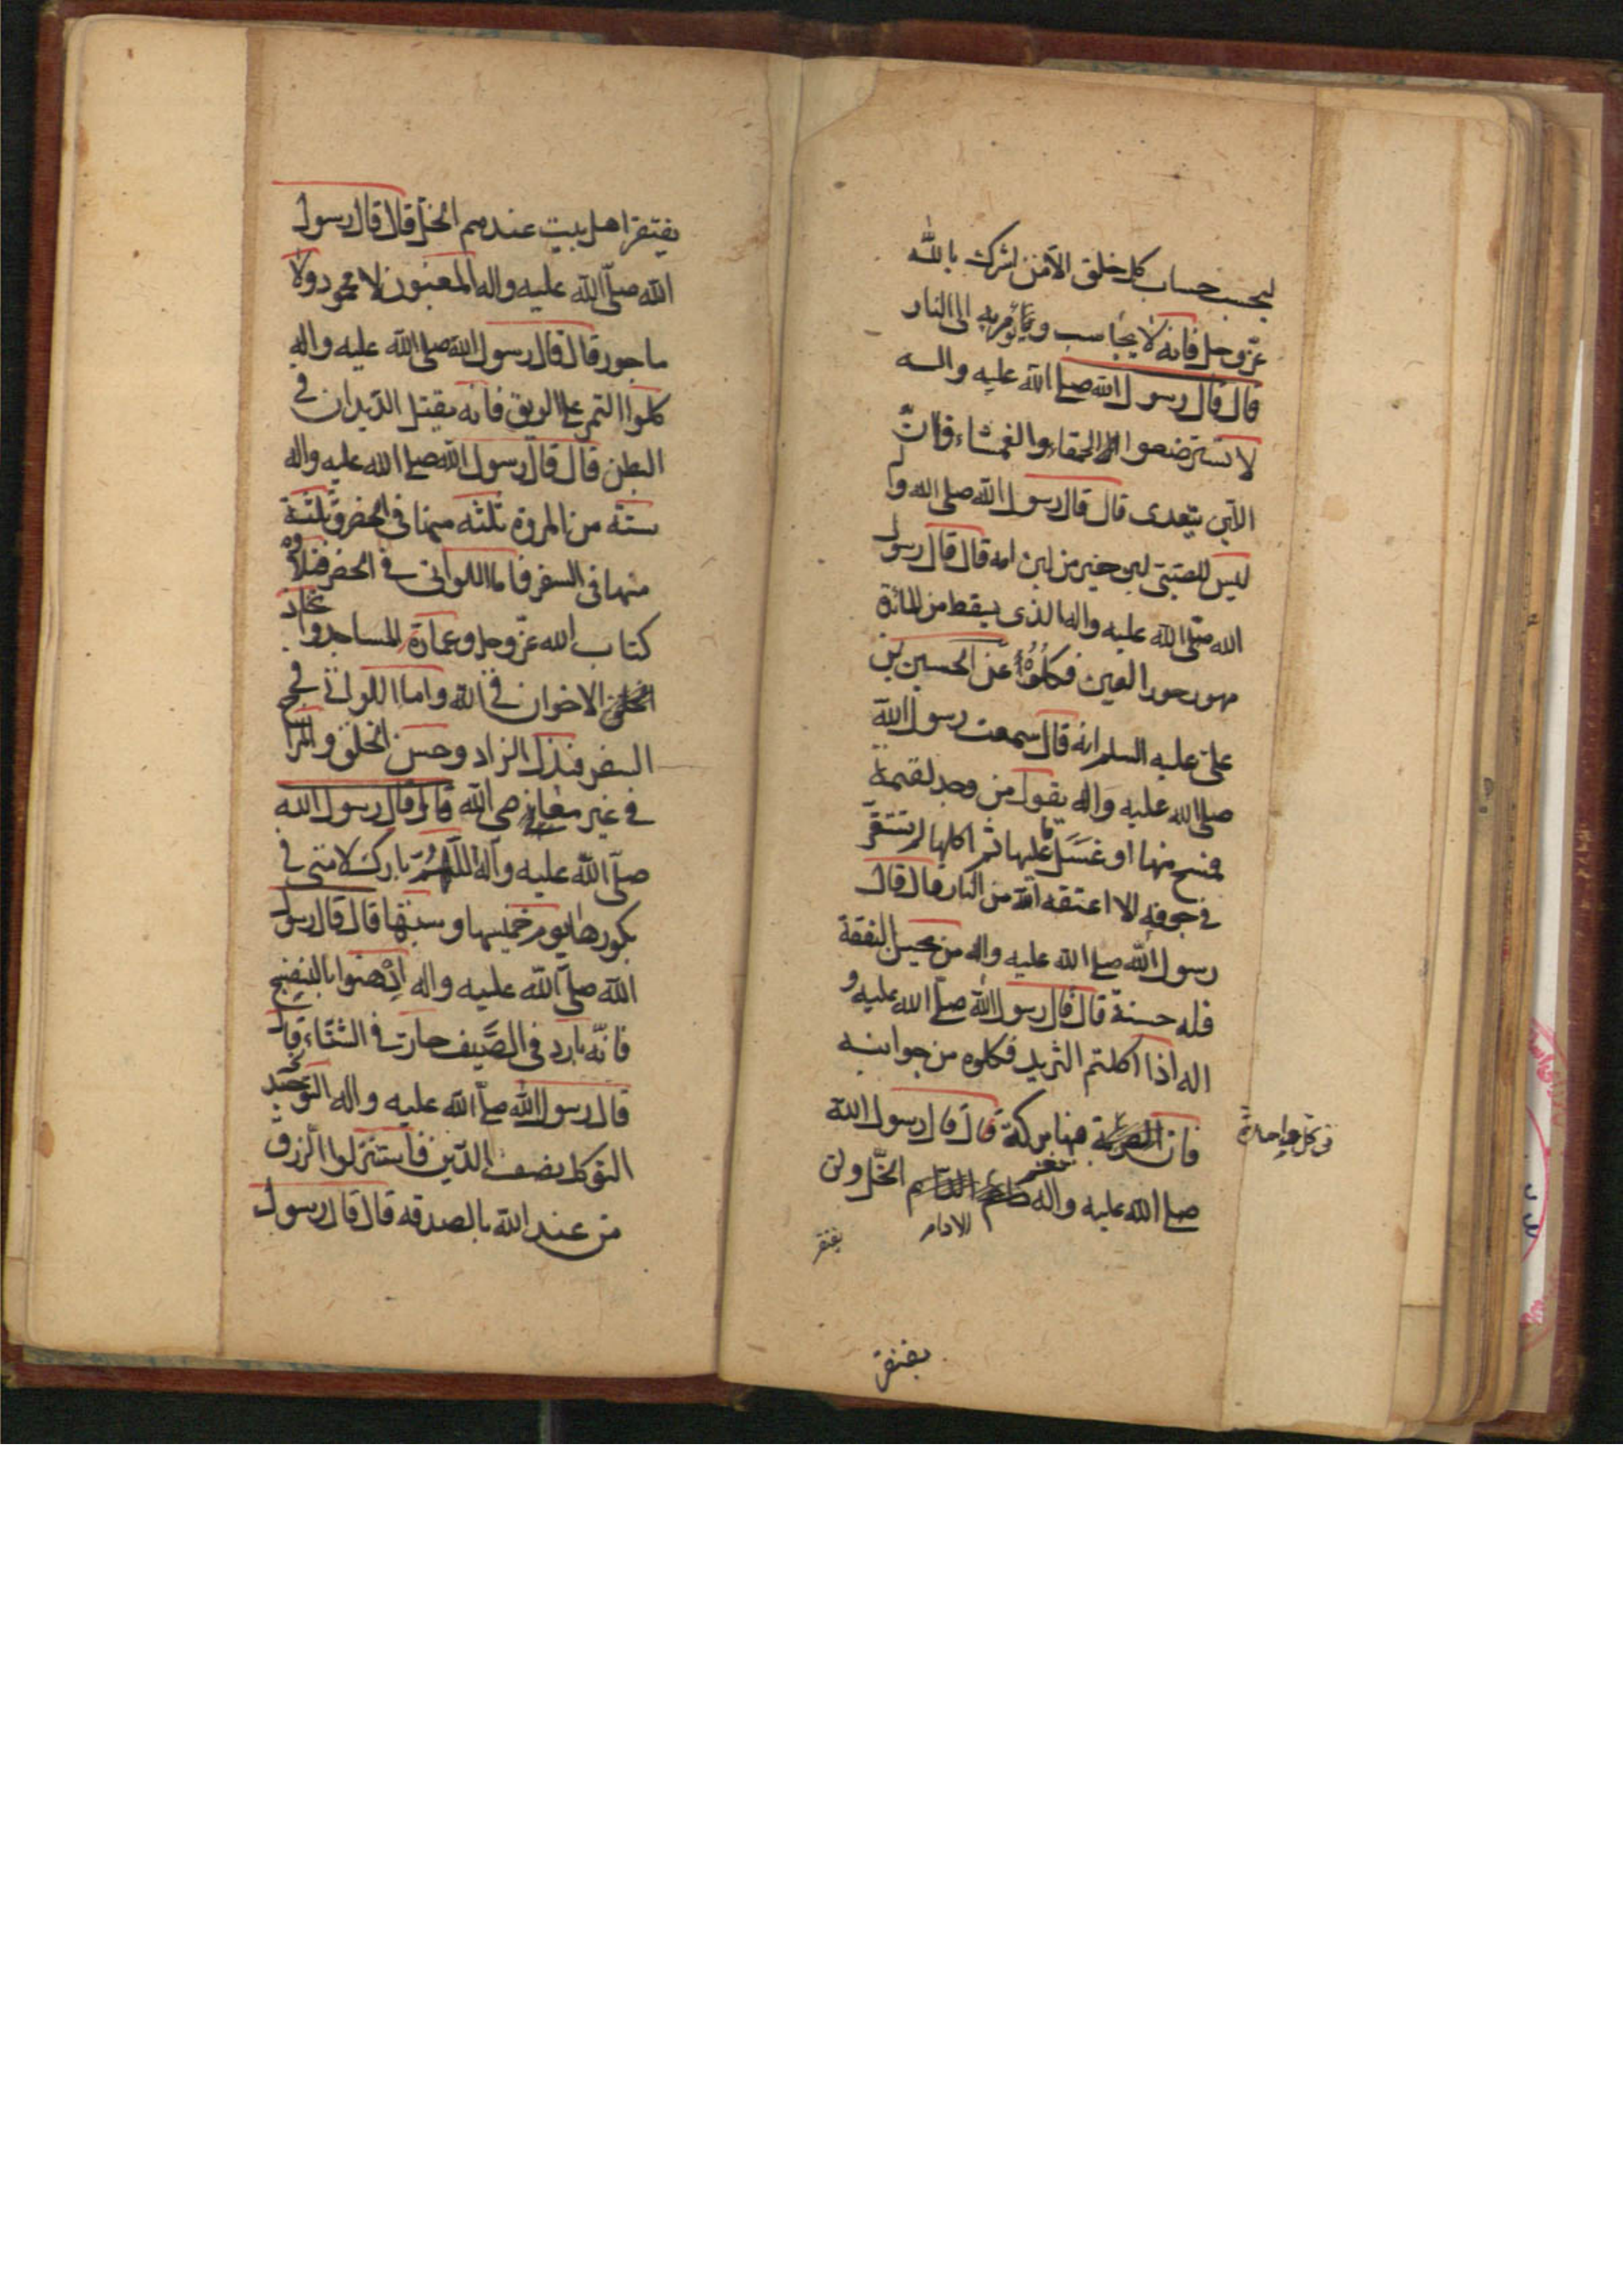 ليحسب حساب كل خلق الا من اشرك بالله
عزوجل فانه لا يحاسب ويؤمر به الى النار
قال قال رسول الله صلى الله عليه واله
لا تسترضعوا الحمقاء والعمشاء فان
اللبن يتعدى قال قال رسول الله صلى الله و
ليس للصبى لبن خير من لبن امه قال قال رسول
الله صلى الله عليه واله الذى يسقط من المائدة
مهور حور العين فكلوه عن الحسين بن
على عليه السلم انه قال سمعت رسول الله
صلى الله عليه واله يقول من وجد لقمة
فمسح منها او غسل عليها ثم اكلها لم تستقر
فى جوفه الا اعتقه الله من النار قال قال
رسول الله صلى الله عليه واله من النفقة
فله حسنة قال قال رسول الله صلى الله عليه و
اله اذا اكلتم الثريد فكلوه من جوانبه
فان فيها بركة قال قال رسول الله
صلى الله عليه واله نعم الخل ولن
الادام
يفتقر
يفتقر
يفتقر اهل بيت عندهم الخل قال قال رسول
الله صلى الله عليه واله المغبون لا محمود ولا
ماجور قال قال رسول الله صلى الله عليه واله
كلوا التمر على الريق فانه يقتل الديدان فى
البطن قال قال رسول الله صلى الله عليه واله
ستة من المروة ثلثه منها فى الحضر وثلثة
منها فى السفر فاما اللواتى فى الحضر فتلاوة
كتاب الله عزوجل وعمارة المساجد واتخاذ
الاخوان فى الله واما اللواتى فى
السفر فبذل الزاد وحسن الخلق والمزاح
فى غير معاصى الله قال قال رسول الله
صلى الله عليه واله اللهم بارك لامتى فى
بكورها يوم خميسها وسبتها قال قال رسول
الله صلى الله عليه واله ادهنوا بالبنفسج
فانه بارد فى الصيف حار فى الشتاء قال
قال رسول الله صلى الله عليه واله التوحيد
التوكل نصف الدين فاستنزلوا الرزق
من عند الله بالصدقه قال قال رسول